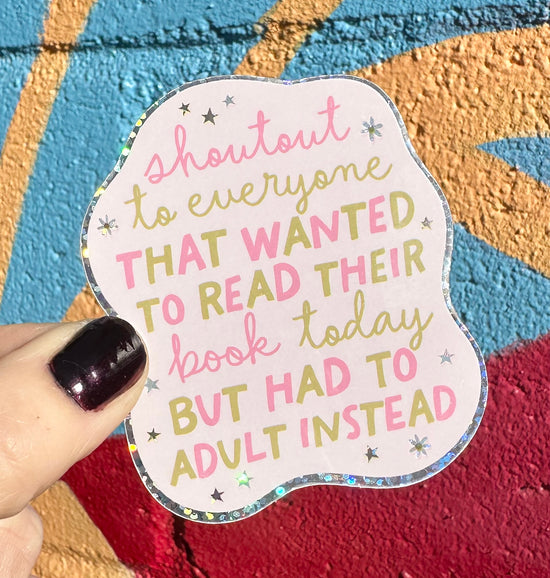 shoutout
to everyone
THAT WANTED
TO READ THEIR
book today
BUT HAD TO
ADULT INSTEAD